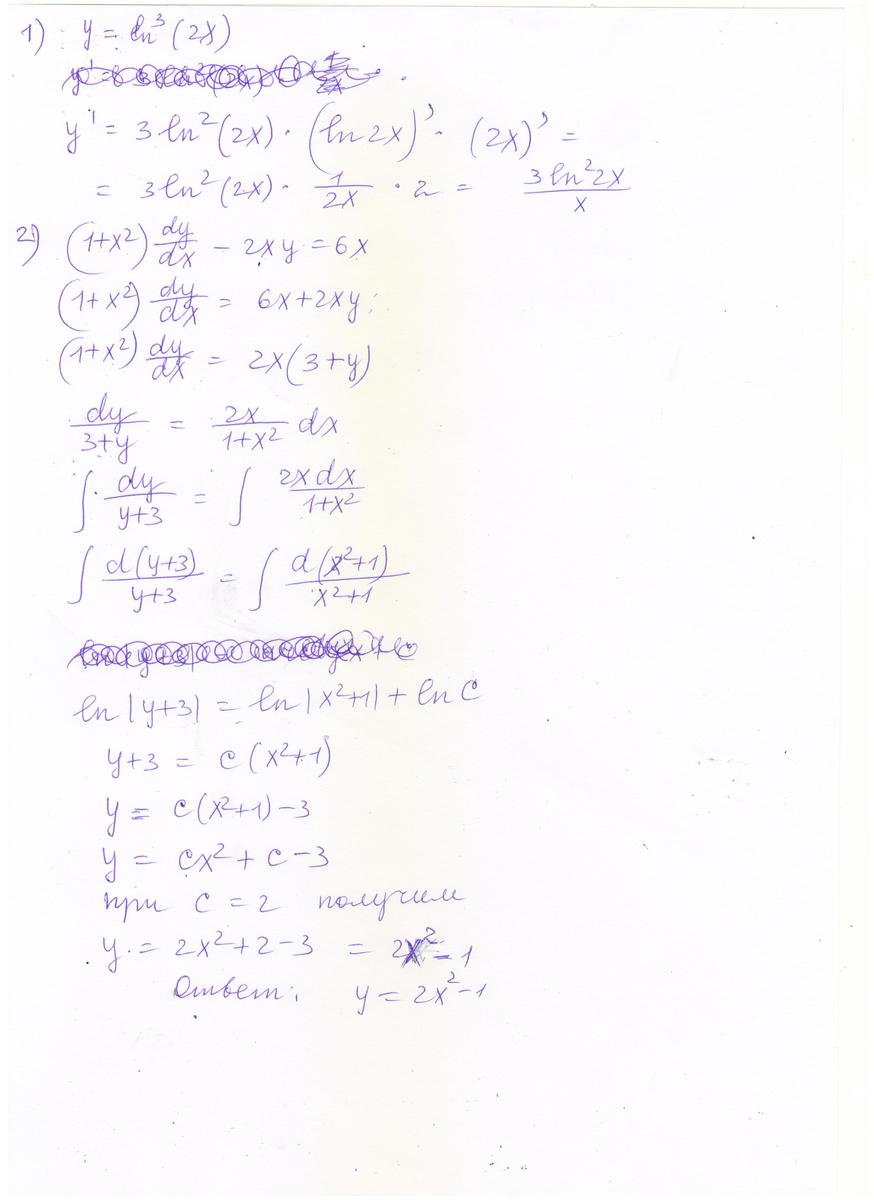 1) y = ln³(2x)
y' = 3ln²(2x)·(ln2x)'·(2x)' =
= 3ln²(2x)· 1/2x ·2 = 3ln²2x/x
2) (1+x²) dy/dx − 2xy = 6x
(1+x²) dy/dx = 6x+2xy;
(1+x²) dy/dx = 2x(3+y)
dy/3+y = 2x/1+x² dx
∫ dy/y+3 = ∫ 2xdx/1+x²
∫ d(y+3)/y+3 = ∫ d(x²+1)/x²+1
ln|y+3| = ln|x²+1| + ln C
y+3 = c(x²+1)
y = c(x²+1)−3
y = cx²+c−3
при c = 2 получим
y = 2x²+2−3 = 2x²−1
Ответ: y = 2x²−1